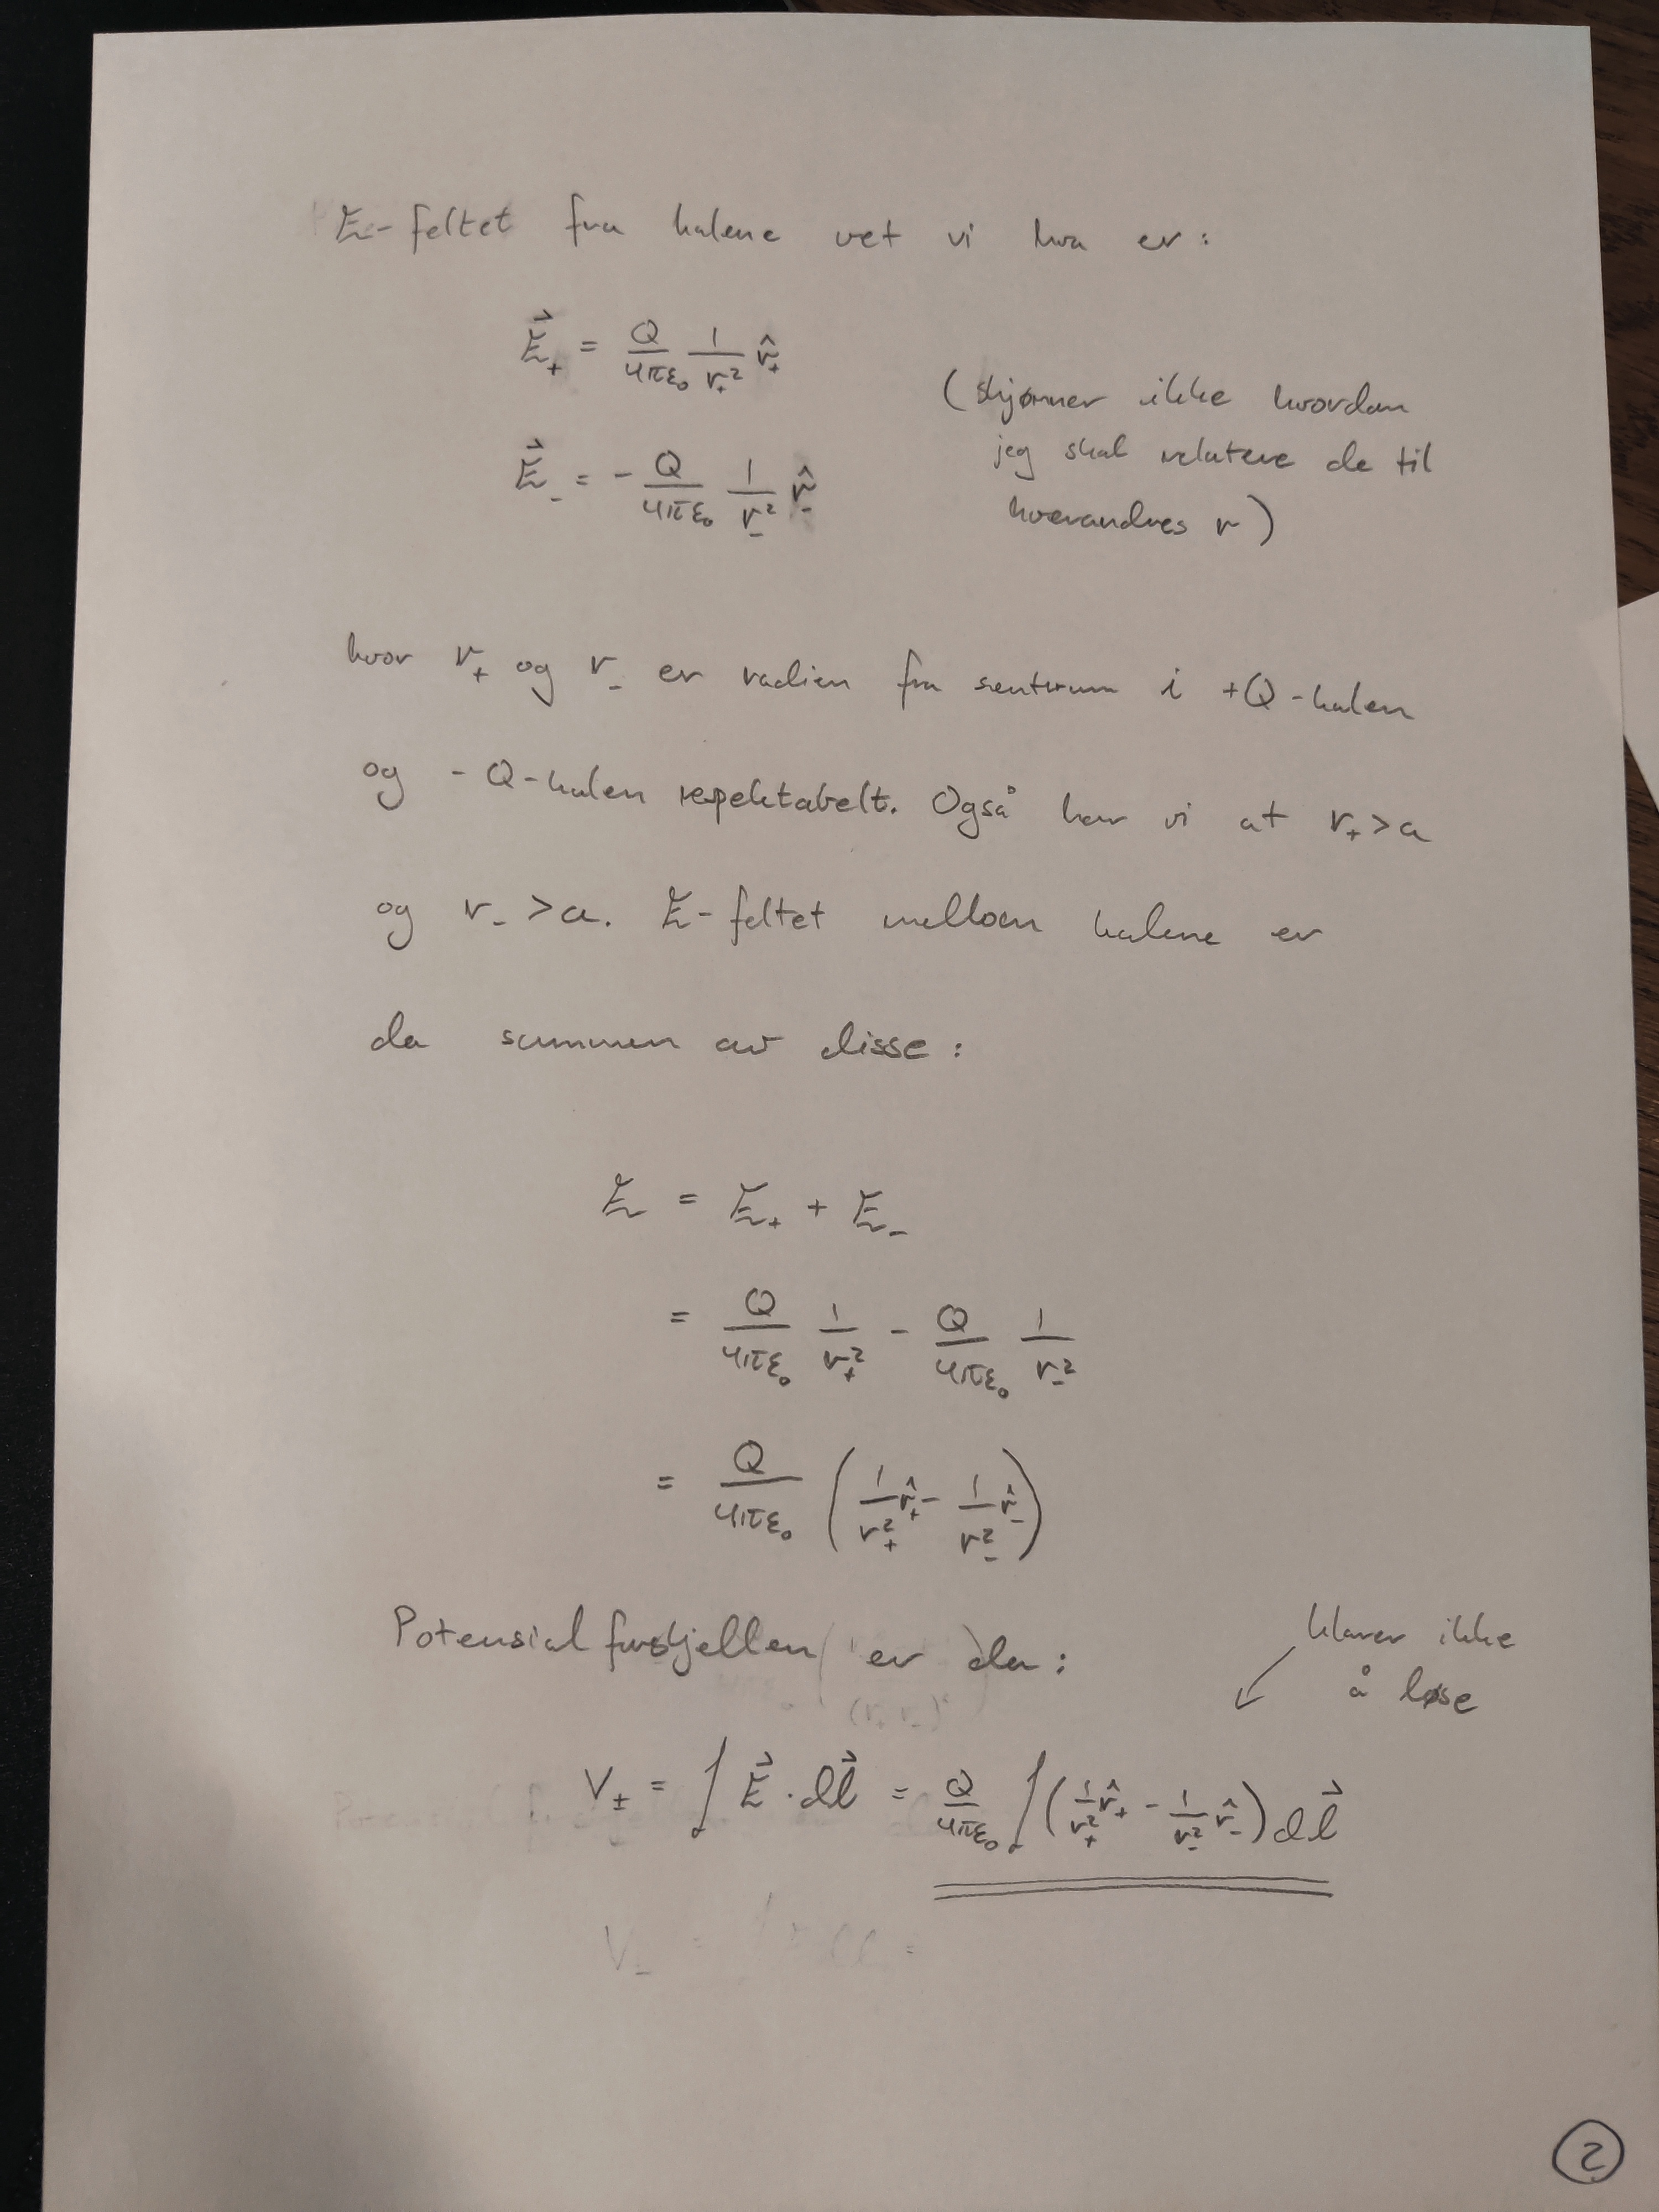 E-feltet fra kulene vet vi hva er:
E⃗₊ = Q/(4πε₀) 1/r₊² r̂₊
(skjønner ikke hvordan
jeg skal relatere de til
hverandres r)
E⃗₋ = - Q/(4πε₀) 1/r₋² r̂₋
hvor r₊ og r₋ er radien fra sentrum i +Q-kulen
og -Q-kulen respektabelt. Også har vi at r₊ > a
og r₋ > a. E-feltet mellom kulene er
da summen av disse:
E = E₊ + E₋
= Q/(4πε₀) 1/r₊² - Q/(4πε₀) 1/r₋²
= Q/(4πε₀) (1/r₊² r̂₊ - 1/r₋² r̂₋)
Potensialforskjellen er da:
klarer ikke
å løse
V± = ∫ E⃗ · dl⃗ = Q/(4πε₀) ∫ (1/r₊² r̂₊ - 1/r₋² r̂₋) dl⃗
2